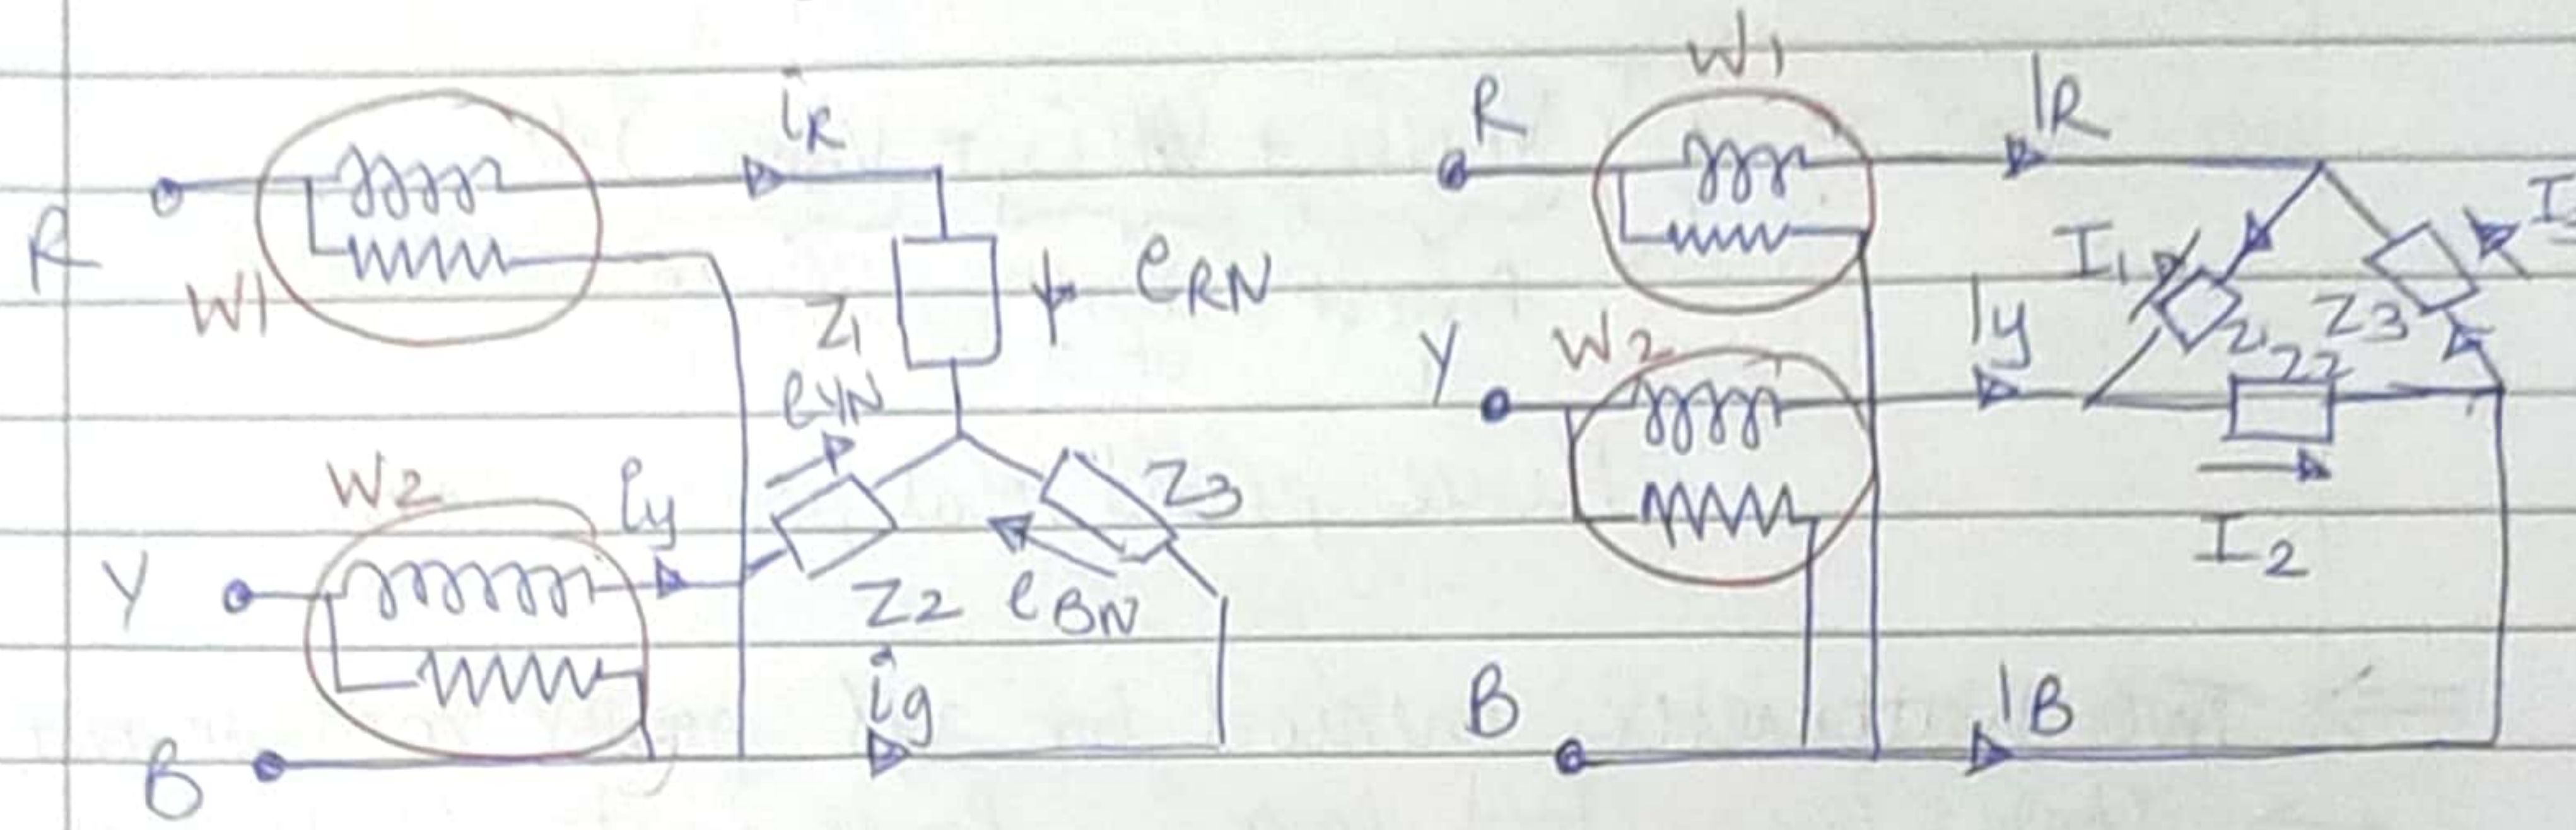 R
W1
iR
Z1
eRN
eYN
W2
ly
Y
Z2
Z3
eBN
ig
B
W1
R
IR
I1
Z1
Z3
I
Y
W2
Iy
Z2
I2
B
IB